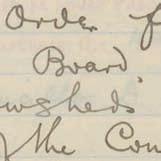 Order f
Board
ewsheds
f the Com